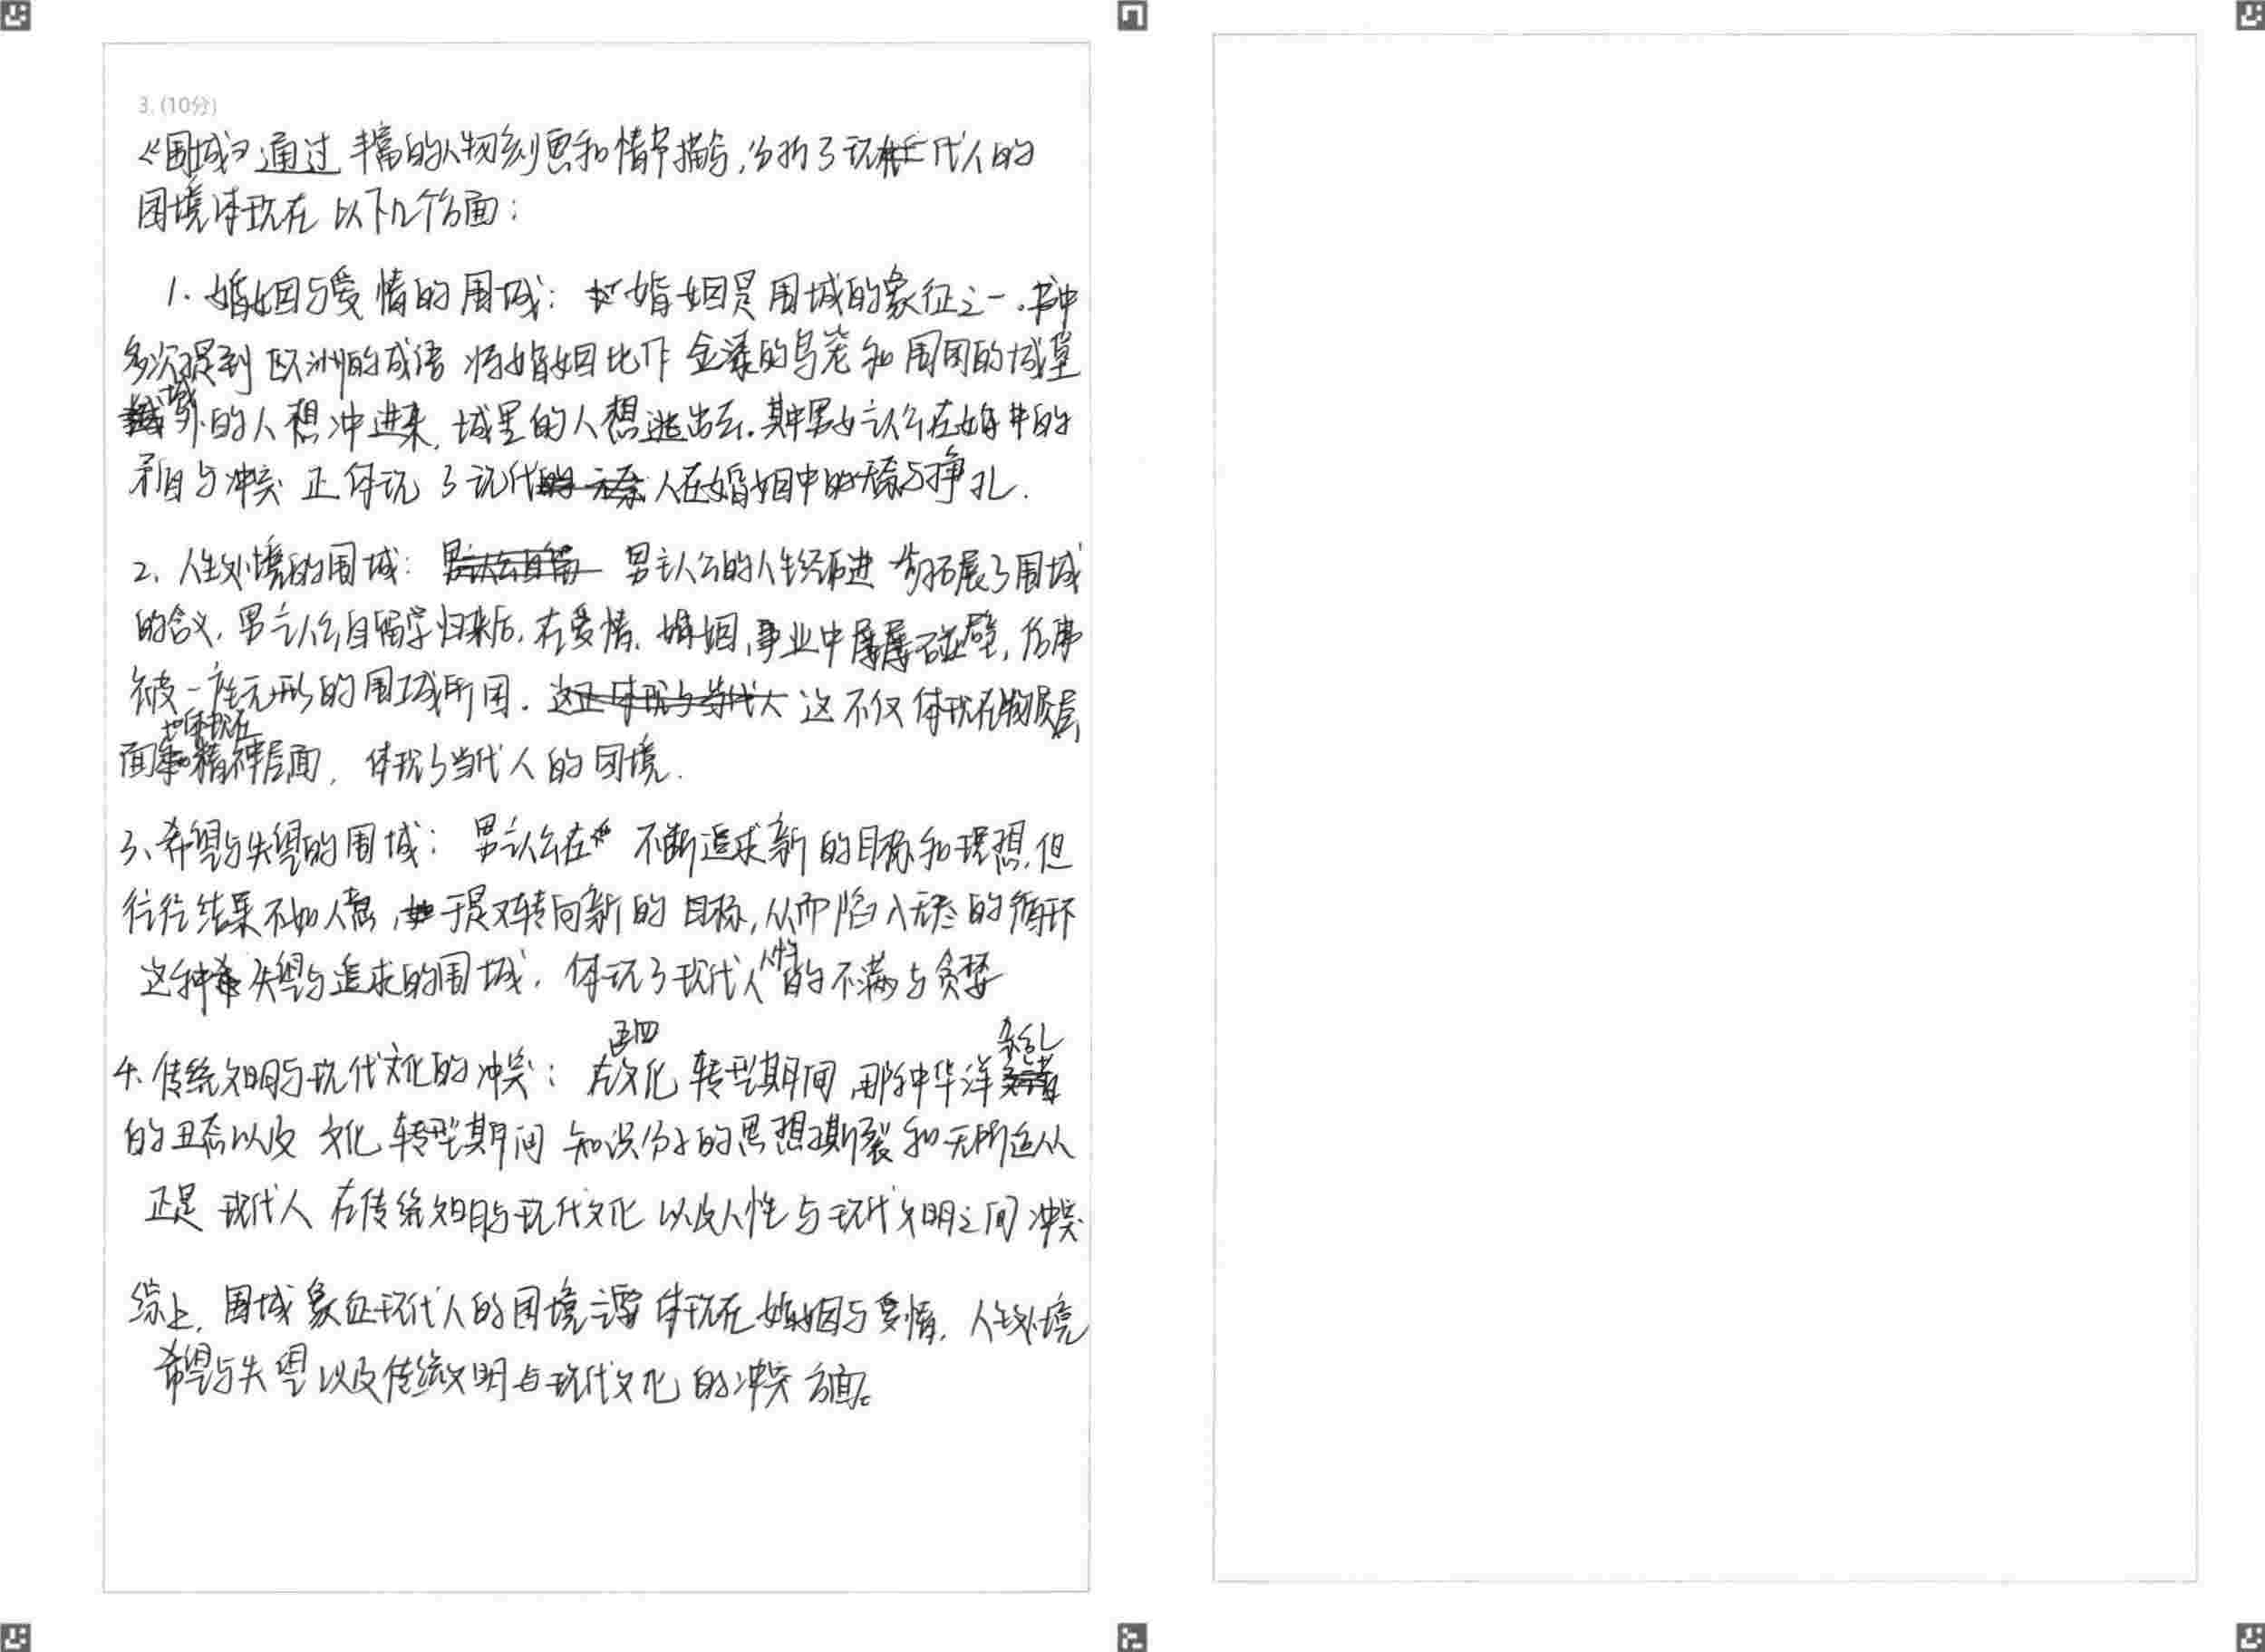 3. (10分)
《围城》通过丰富的人物刻画和情节描写,分析了现代人的
困境体现在以下几个方面:
1. 婚姻与爱情的围城: 婚姻是围城的象征之一。书中
多次提到欧洲的成语将婚姻比作金漆的鸟笼和围困的城堡
城外的人想冲进来,城里的人想逃出去.其中男女主人公在婚中的
矛盾与冲突正体现了现代人在婚姻中的无奈与挣扎.
2、人生处境的围城: 男主人公的人生经历进一步拓展了围城
的含义,男主人公自留学归来后,在爱情、婚姻、事业中屡屡碰壁,仿弗
被一座无形的围城所困. 这不仅体现在物质层
面也体现在精神层面,体现了当代人的困境.
3、希望与失望的围城: 男主人公在不断追求新的目标和理想,但
往往结果不如人意,于是又转向新的目标,从而陷入无尽的循环
这种失望与追求的围城,体现了现代人人性的不满与贪婪
4、传统文明与现代文化的冲突: 在五四文化转型期间那种华洋杂乱
的丑态以及文化转型期间知识份子的思想撕裂和无所适从
正是现代人在传统文明与现代文化以及人性与现代文明之间冲突
综上,围城象征现代人的困境主要体现在婚姻与爱情,人生处境
希望与失望以及传统文明与现代文化的冲突方面。